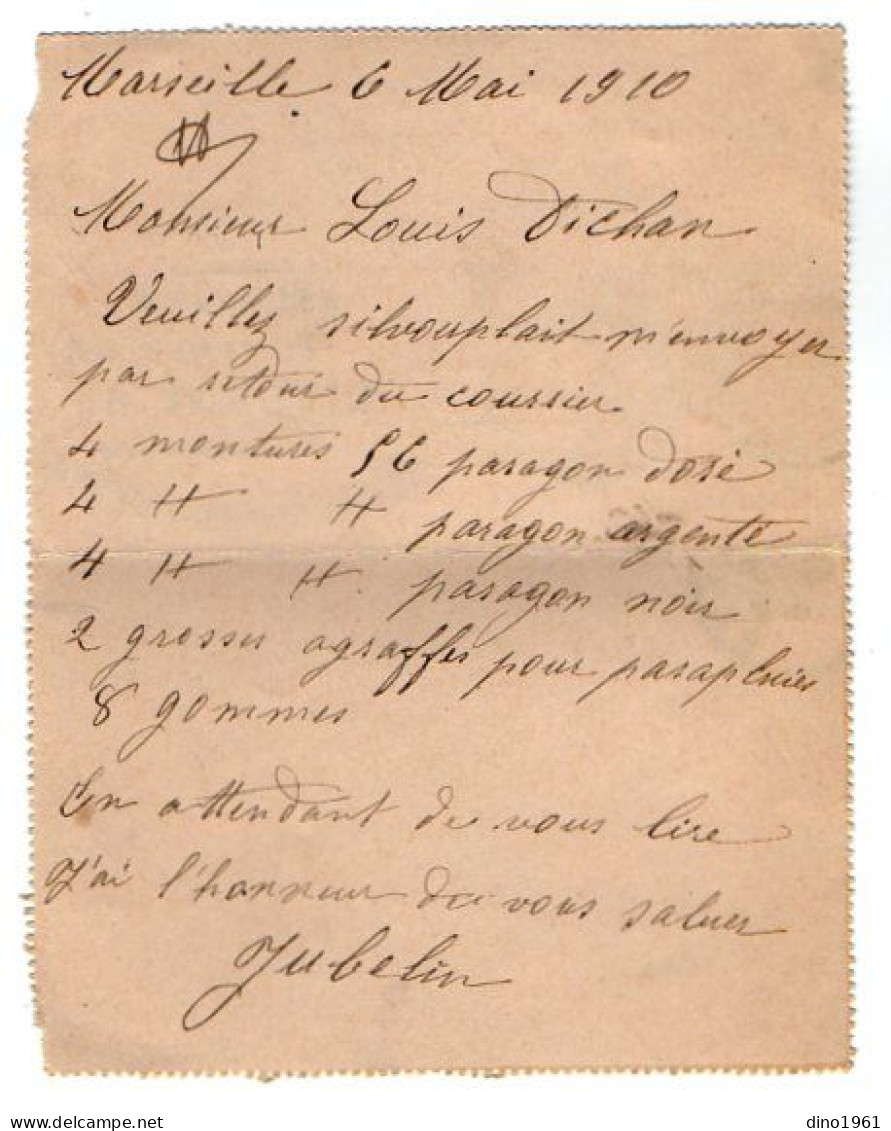 Marseille 6 Mai 1910
Monsieur Louis Dichan
Veuillez silvouplait m'envoyer
par retour du coussier
4 montures 56 paragon doré
4 " " paragon argenté
4 " " paragon noir
2 grosses agraffes pour parapluies
8 gommes
En attendant de vous lire
J'ai l'honneur de vous saluer
Jubelin
dino1961